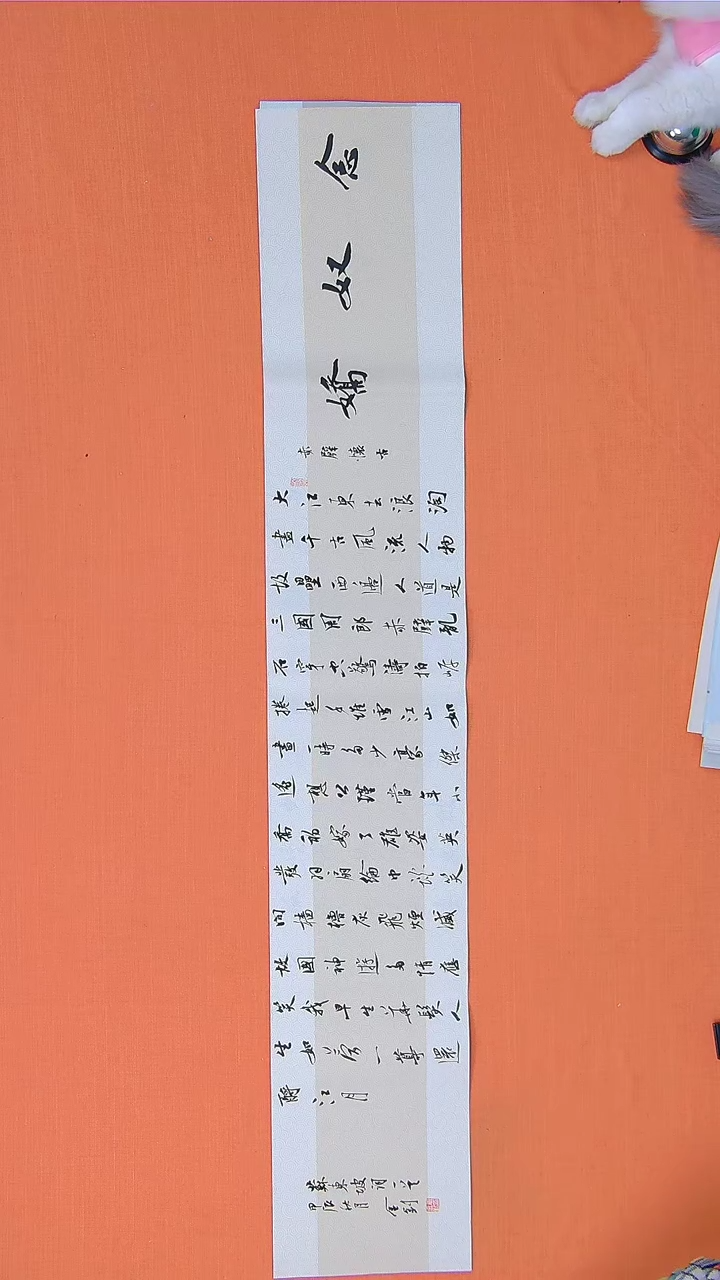 念奴嬌
赤壁懷古
大江東去浪淘
盡千古風流人物
故壘西邊人道是
三國周郎赤壁亂
石穿空驚濤拍岸
捲起千堆雪江山如
畫一時多少豪傑
遙想公瑾當年小
喬初嫁了雄姿英
發羽扇綸巾談笑
間檣櫓灰飛煙滅
故國神遊多情應
笑我早生華髮人
生如夢一尊還
酹江月
蘇東坡詞一首
甲辰 月